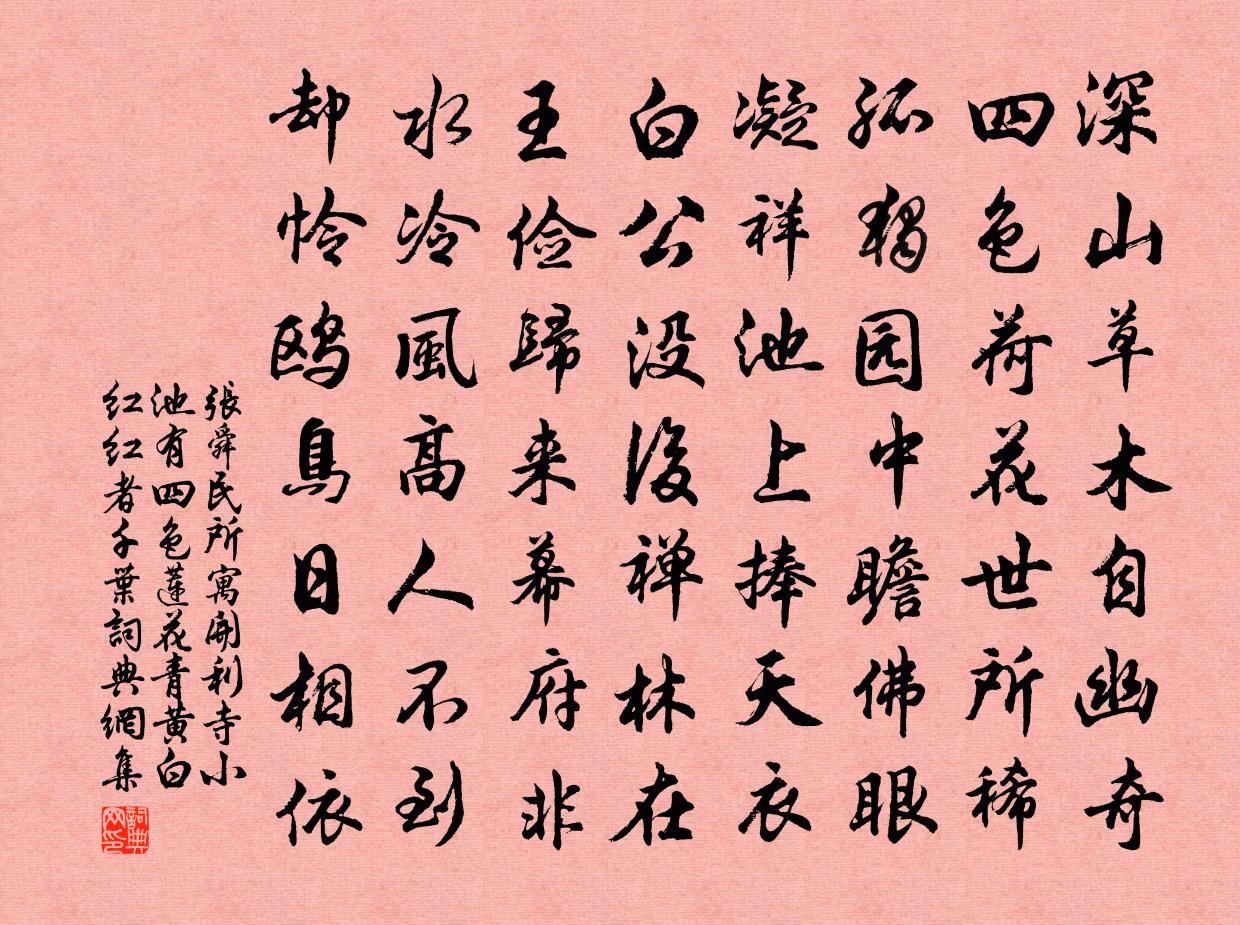 深山草木自幽奇
四色荷花世所稀
孤独园中瞻佛眼
凝祥池上捧天衣
白公没後禅林在
王俭歸来幕府非
水冷風高人不到
却怜鸥鳥日相依
張舜民所寓開利寺小
池有四色蓮花青黄白
红红者千葉詞典網集
詞典
网印